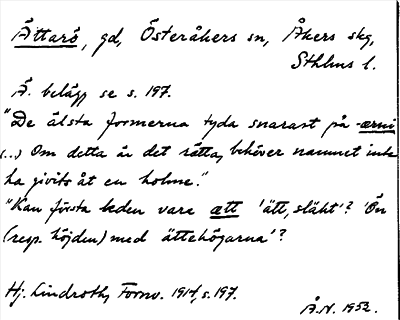 Ättarö, gd, Österåkers sn, Åkers skg,
Sthlms l.
Ä. belägg se s. 197.
"De älsta formerna tyda snarast på -ærni
(...) Om detta är det rätta, behöver namnet inte
ha givits åt en holme."
"Kan första leden vare ætt 'ätt, släkt'? 'Ön
(resp. höjden) med ättehögarna'?
Hj. Lindroth, Fornv. 1914, s. 197.
Å.N. 1952.